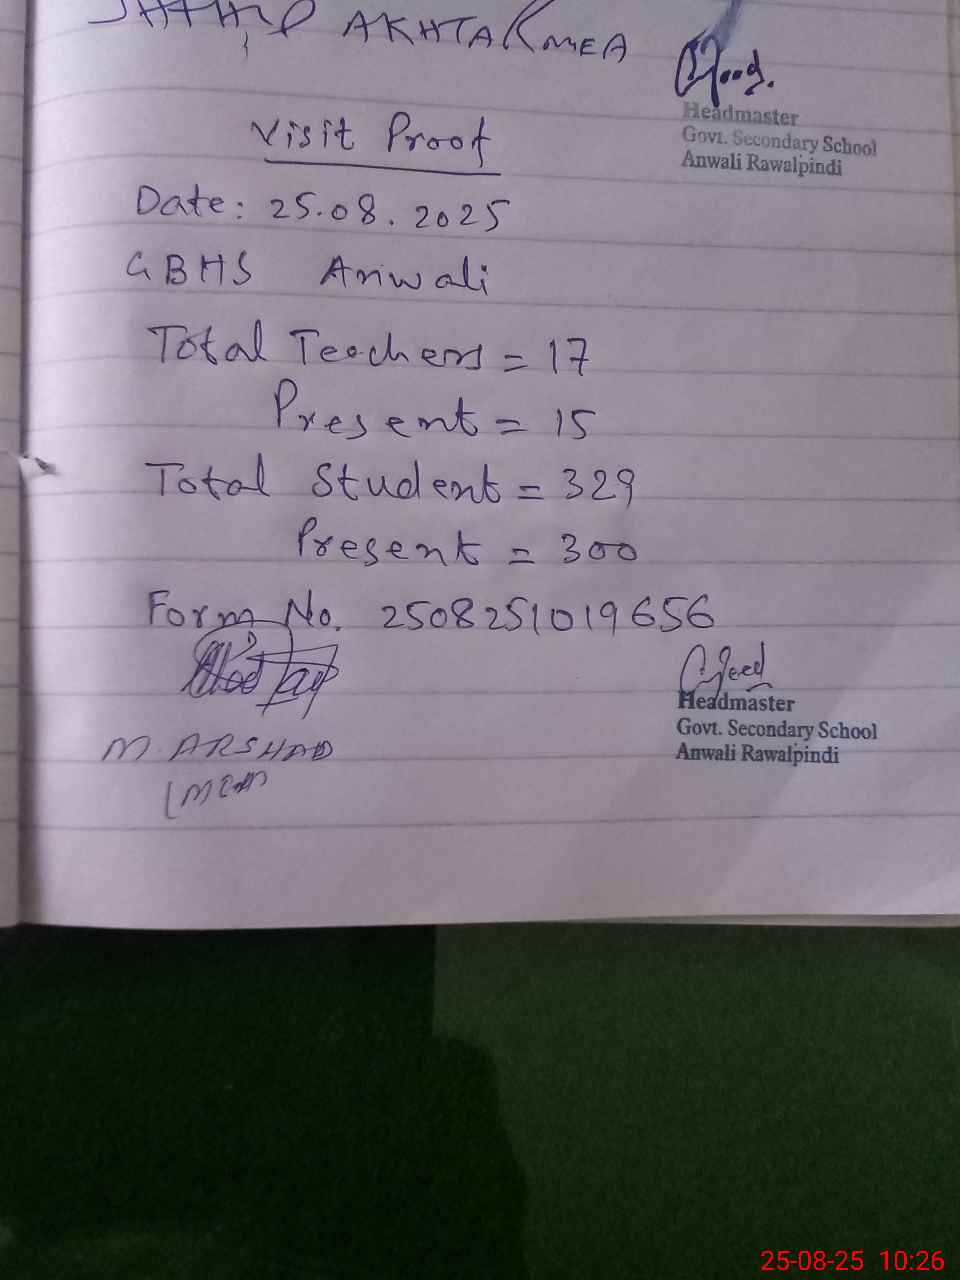 AKHTAR MEA
Headmaster
Govt. Secondary School
Anwali Rawalpindi
Visit Proof
Date: 25.08.2025
GBHS Anwali
Total Teachers = 17
Present = 15
Total Student = 329
Present = 300
Form No. 2508251019656
Headmaster
Govt. Secondary School
Anwali Rawalpindi
M. ARSHAD
25-08-25 10:26